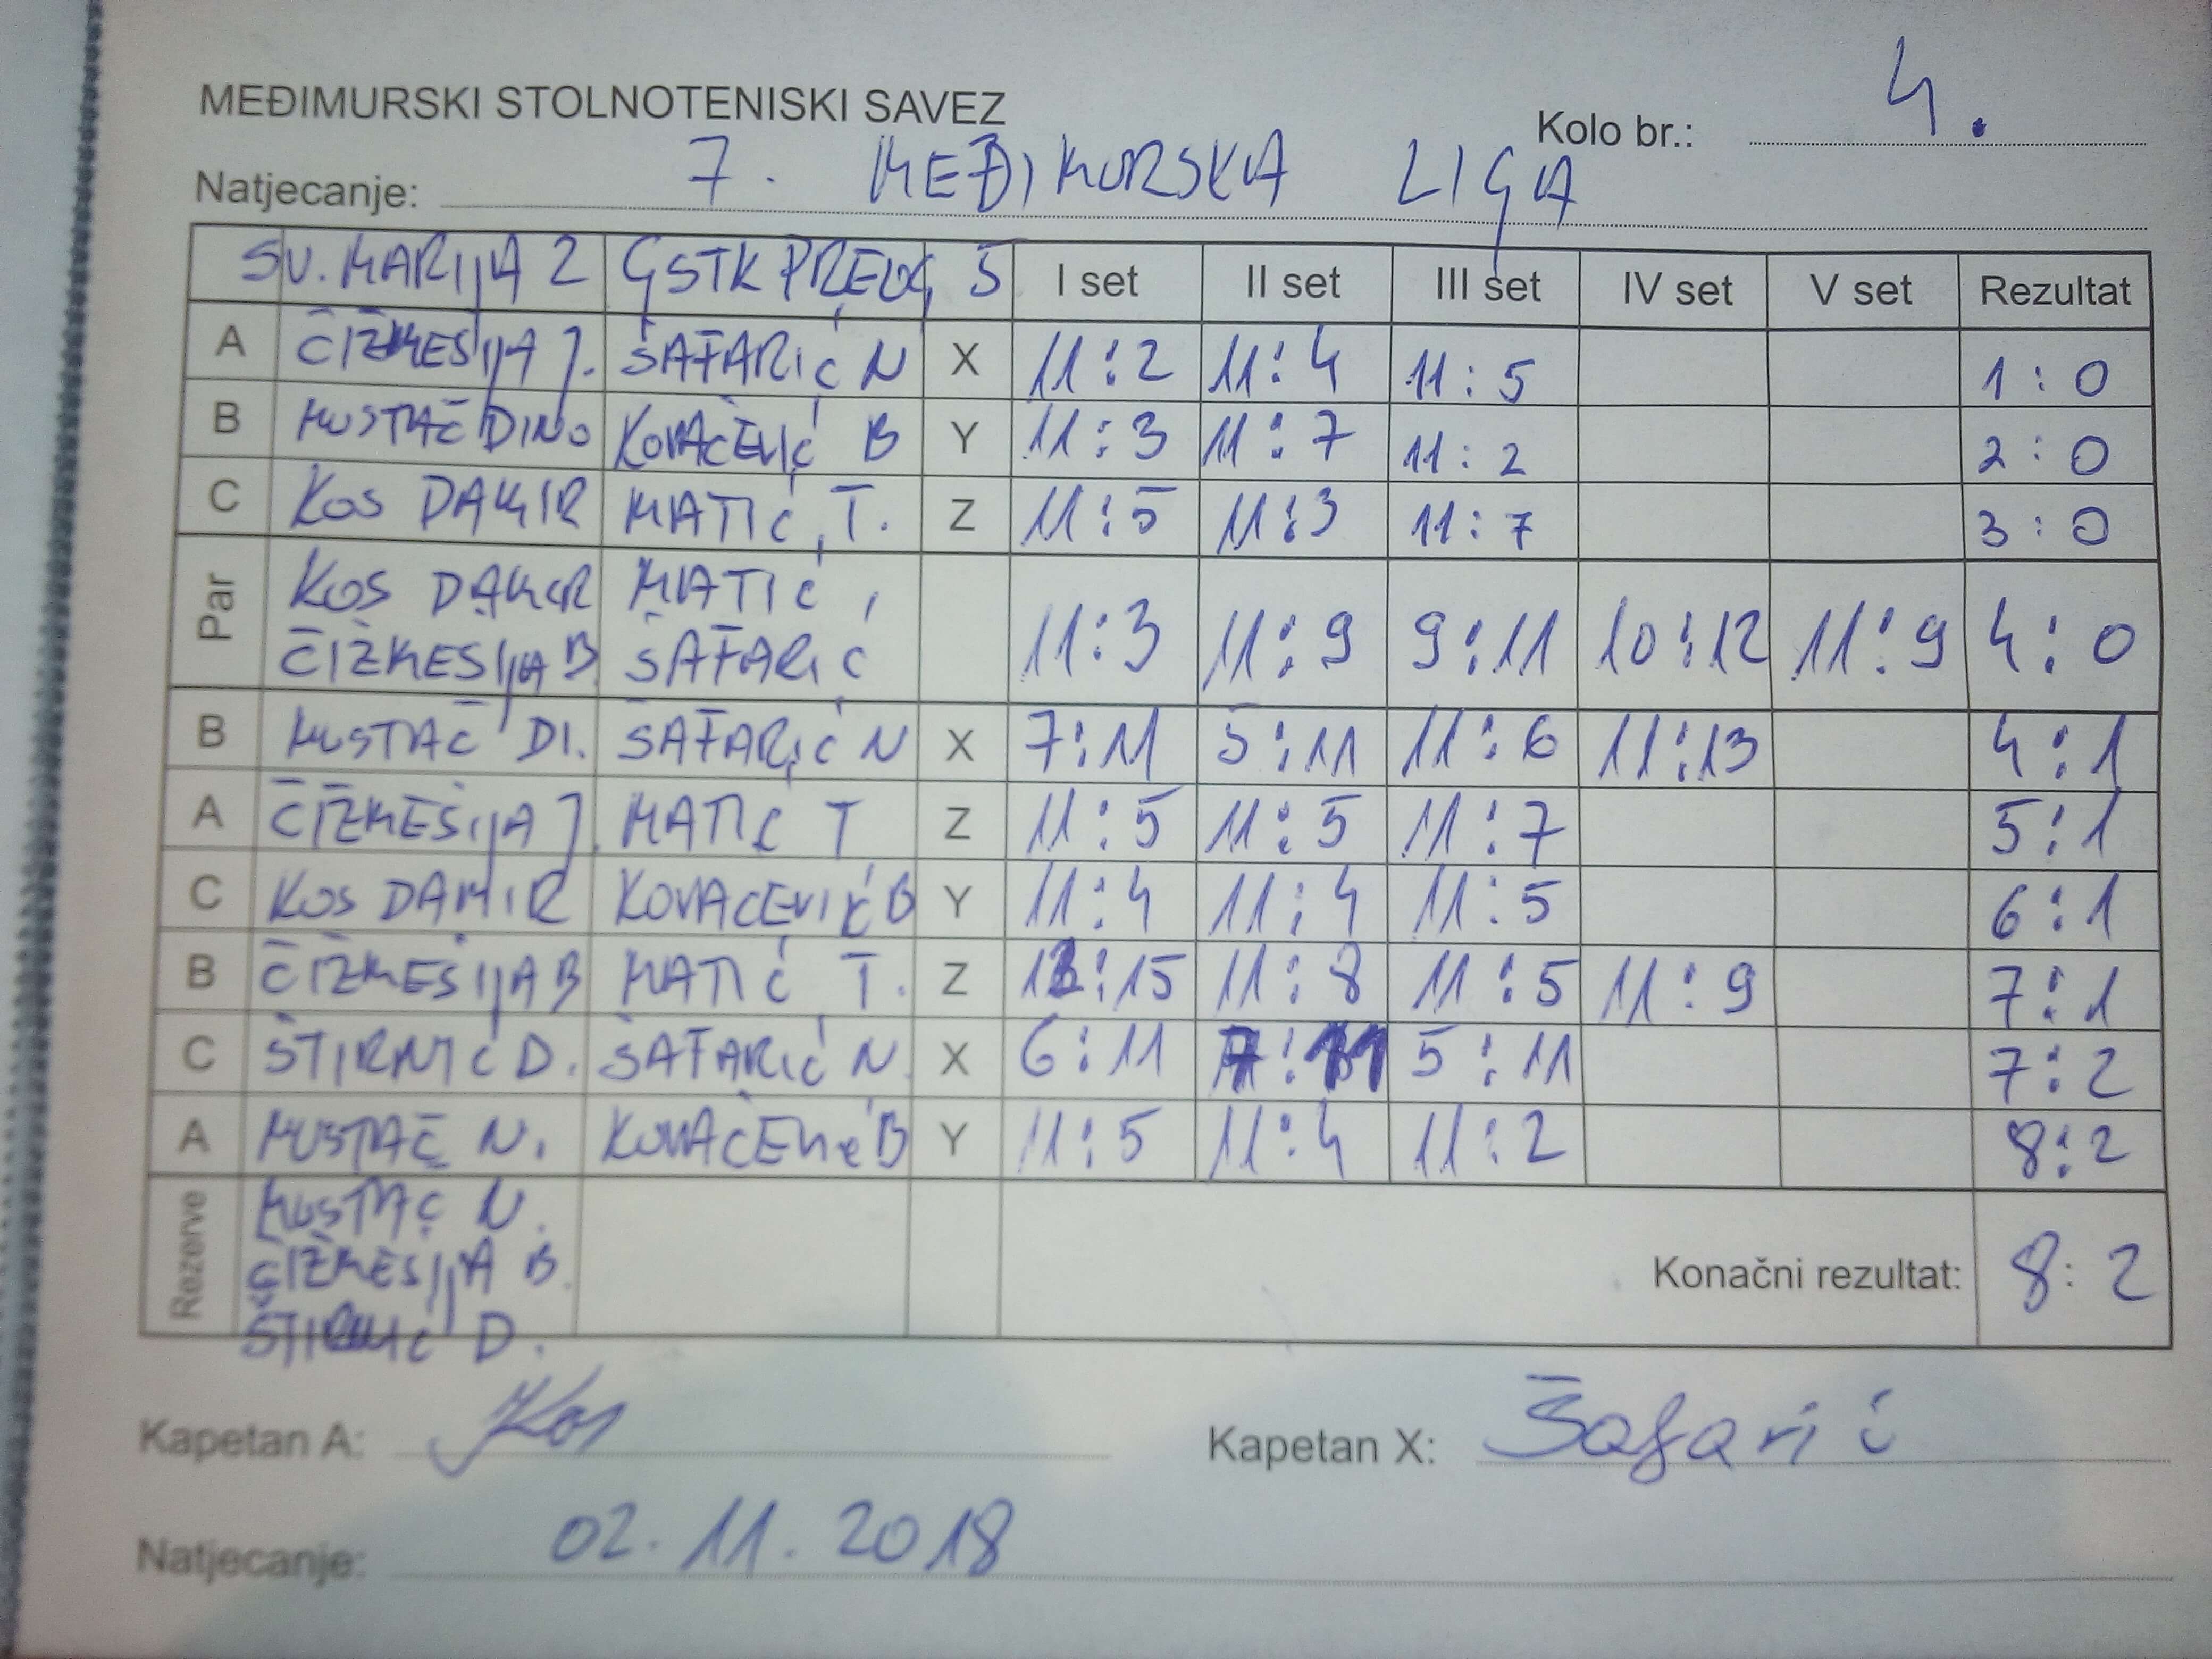 MEĐIMURSKI STOLNOTENISKI SAVEZ
Kolo br.: 4.
Natjecanje: 7. MEĐIMURSKA LIGA
SV. MARIJA 2 GSTK PRELOG 5 I set II set III set IV set V set Rezultat
A ČIŽMESIJA J. ŠAFARIĆ N X 11:2 11:4 11:5 1:0
B MUSTAČ DINO KOVAČEVIĆ B Y 11:3 11:7 11:2 2:0
C KOS DAMIR MATIĆ T. Z 11:5 11:3 11:7 3:0
Par KOS DAMIR MATIĆ 11:3 11:9 9:11 10:12 11:9 4:0
ČIŽMESIJA B ŠAFARIĆ
B MUSTAČ DI. ŠAFARIĆ N X 7:11 5:11 11:6 11:13 4:1
A ČIŽMESIJA J. MATIĆ T Z 11:5 11:5 11:7 5:1
C KOS DAMIR KOVAČEVIĆ B Y 11:4 11:4 11:5 6:1
B ČIŽMESIJA B MATIĆ T. Z 13:15 11:8 11:5 11:9 7:1
C ŠTIRNIĆ D. ŠAFARIĆ N. X 6:11 7:11 5:11 7:2
A MUSTAČ N. KOVAČEVIĆ B Y 11:5 11:4 11:2 8:2
Rezerve MUSTAČ N.
ČIŽMESIJA B.
ŠTIRNIĆ D.
Konačni rezultat: 8:2
Kapetan A: Kos Kapetan X: Šafarić
Natjecanje: 02.11.2018